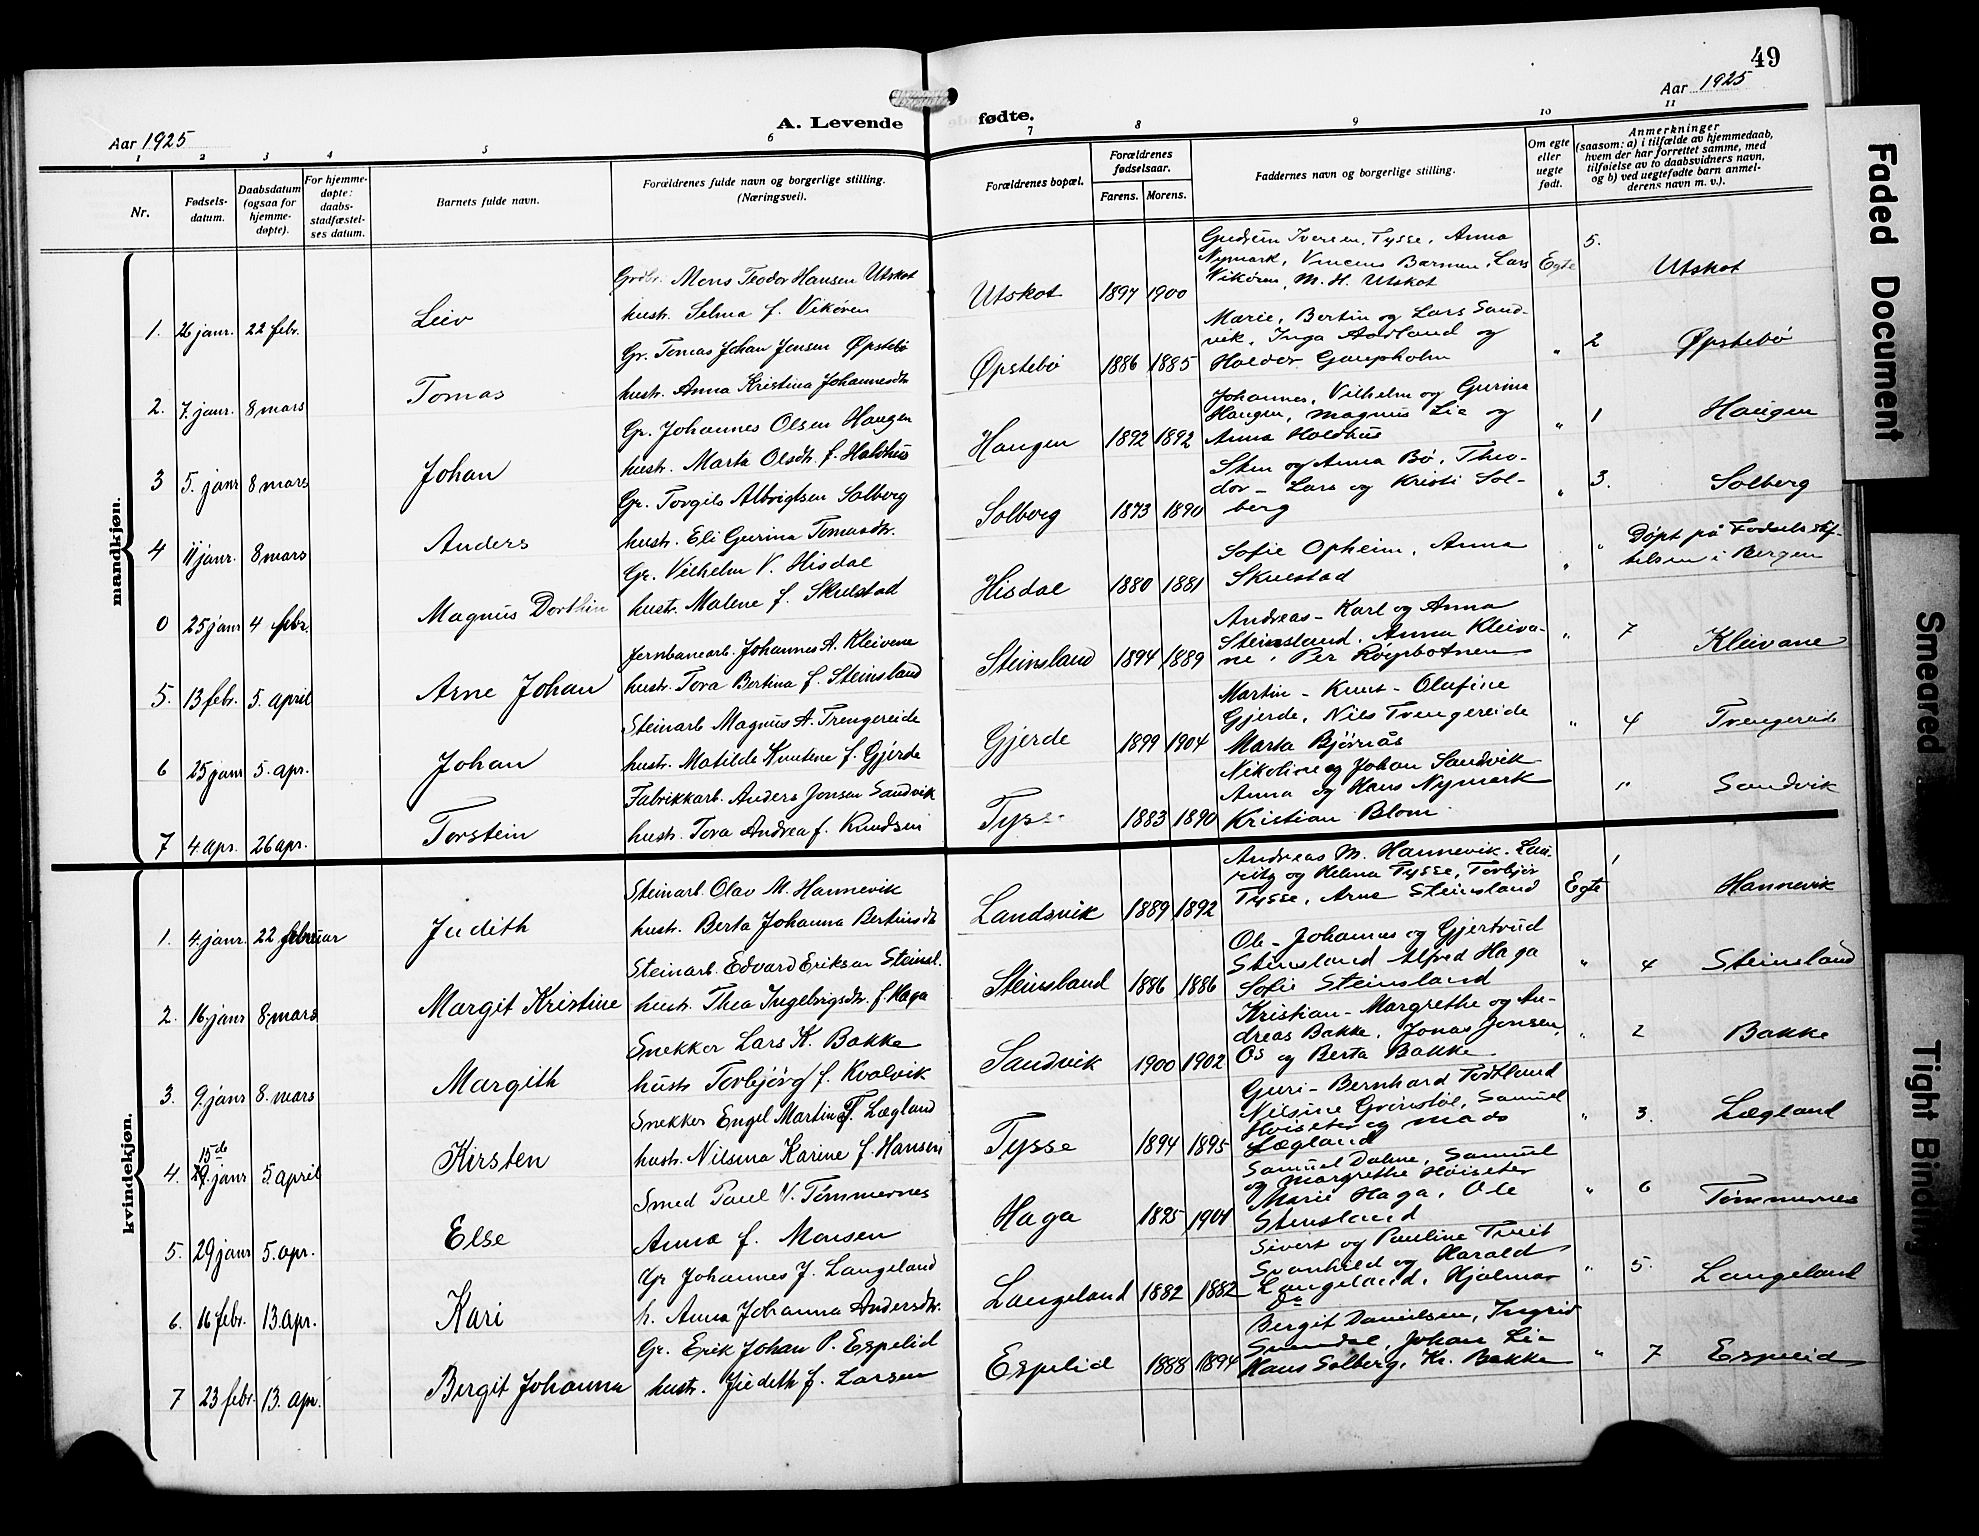 49
Aar 1925
Aar 1925
A. Levende fødte.
1 2 3 4 5 6 7 8 9 10 11
Nr.
Fødsels-
datum.
Daabsdatum
(ogsaa for
hjemme-
døpte).
For hjemme-
døpte:
daabs-
stadfæstel-
ses datum.
Barnets fulde navn.
Forældrenes fulde navn og borgerlige stilling.
(Næringsvei).
Forældrenes bopæl.
Forældrenes
fødselsaar.
Farens. Morens.
Faddernes navn og borgerlige stilling.
Om egte
eller
uegte
født.
Anmerkninger
(saasom: a) i tilfælde av hjemmedaab,
hvem der har forrettet samme, med
tilføielse av to daabsvidners navn,
og b) ved uegtefødte barn anmel-
derens navn m. v.).
mandkjøn.
1. 26 janr. 22 febr. Leiv
Mons Teodor Hansen Utskot
hustr. Selma f. Vikøren
Utskot 1897 1900
Gudrun Iversen, Tysse, Anna
Nymark, Lars
Vikøren, M. H. Utskot
Egte 5. Utskot
2. 7. janr. 8 mars Tomas
Gr. Tomas Johan Jensen Øpstebø
hustr. Anna Kristina Johannesdtr
Øpstebø 1886 1885
Marie, Bertin og Lars Sand-
vik, Inga Aadland og
Gaupholm
" 2 Øpstebø
3 5. janr 8 mars Johan
Gr. Johannes Olsen Haugen
hustr. Marta Olsdtr. f. Holdhus
Haugen 1892 1892
Johannes, Vilhelm og Gurina
Haugen, Magnus Lie og
Anna Holdhus
" 1 Haugen
4 11 janr. 8 mars Anders
Gr. Torgils Albrigtsen Solberg
hustr. Eli Gurina Tomasdtr.
Solberg 1873 1890
Sten og Anna Bø, Theo-
dor - Lars og Kristi Sol-
berg
" 3. Solberg
0 25 janr 4 febr. Magnus
Gr. Vilhelm V. Hisdal
hustr. Malene f. Skulstad
Hisdal 1880 1881
Sofie Opheim, Anna
Skulstad
" " Døpt på Fødselsstif-
telsen i Bergen
5. 13 febr. 5. april Arne Johan
Jernbanearb. Johannes A. Kleivene
hustr. Tora Bertina f. Steinsland
Steinsland 1894 1889
Andreas - Karl og Anna
Steinsland, Anna Kleiva-
ne, Per Røynbotnen
" 7 Kleivane
6 25 janr 5. apr. Johan
Steinarb. Magnus A. Trengereide
hustr. Matilde Knutene f. Gjerde
Gjerde 1899 1904
Martin - Knut - Olufine
Gjerde, Nils Trengereide
Marta Bjørnås
" 4 Trengereid
7 4. apr. 26 apr. Torstein
Fabrikkarb. Anders Jonsen Sandvik
hustr. Tora Andrea f. Knudsen
Tysse 1883 1890
Nikoline og Johan Sandvik
Anna og Hans Nymark
Kristian Blom
" Sandvik
kvindekjøn.
1. 4. janr. 22 februar Judith
Steinarb. Olav M. Hannevik
hustr. Berta Johanna Bertinsdtr
Landsvik 1889 1892
Andreas M. Hannevik, Lau-
ritz og Helena Tysse, Torbjør
Tysse, Arne Steinsland
Egte 1 Hannevik
2. 16. janr 8. mars Margit Kristine
Steinarb. Edvard Eriksen Steinsl.
hustr. Thea Ingebrigsdtr. f. Haga
Steinsland 1886 1886
Ole - Johannes og Gjertrud
Steinsland Alfred Haga
Sofie Steinsland
" 4 Steinsland
3. 9. janr 8. mars Margith
Snekker Lars K. Bakke
hustr Torbjørg f. Kvalvik
Sandvik 1900 1902
Kristian - Margrethe og An-
dreas Bakke, Jonas Jensen,
Os og Berta Bakke
" 2 Bakke
15de
4. 29. janr 5. april Kirsten
Snekker Engel Martin T. Lægland
hustr. Nilsina Karine f. Hansen
Tysse 1894 1895
Guri - Bernhard Todtland
Nilsine Grimstøl, Samuel
Høiseter og Mads
Lægland
" 3. Lægland
5. 29 janr 5. apr. Else
Smed Paul V. Tømmernes
Anna f. Monsen
Haga 1895 1901
Samuel Dahne, Samuel
og Margrethe Høiseter
Marie Haga, Ole
Steinsland
" 6 Tømmernes
6. 16 febr. 13. apr. Kari
Gr. Johannes J. Langeland
h. Anna Johanna Andersdtr.
Langeland 1882 1882
Sivert og Pauline Tveit
Svanhild og Harald
Langeland, Hjalmar
Do
" 5. Langeland
7 23 febr. 13. apr. Bergit Johanna
Gr. Erik Johan P. Espelid
hustr. Judith f. Larsen
Espelid 1888 1894
Bergit Danielsen, Ingrid
Johan Lie
Hans Solberg, Kr. Bakke
" 7 Espelid
Faded Document
Smeared
Tight Binding